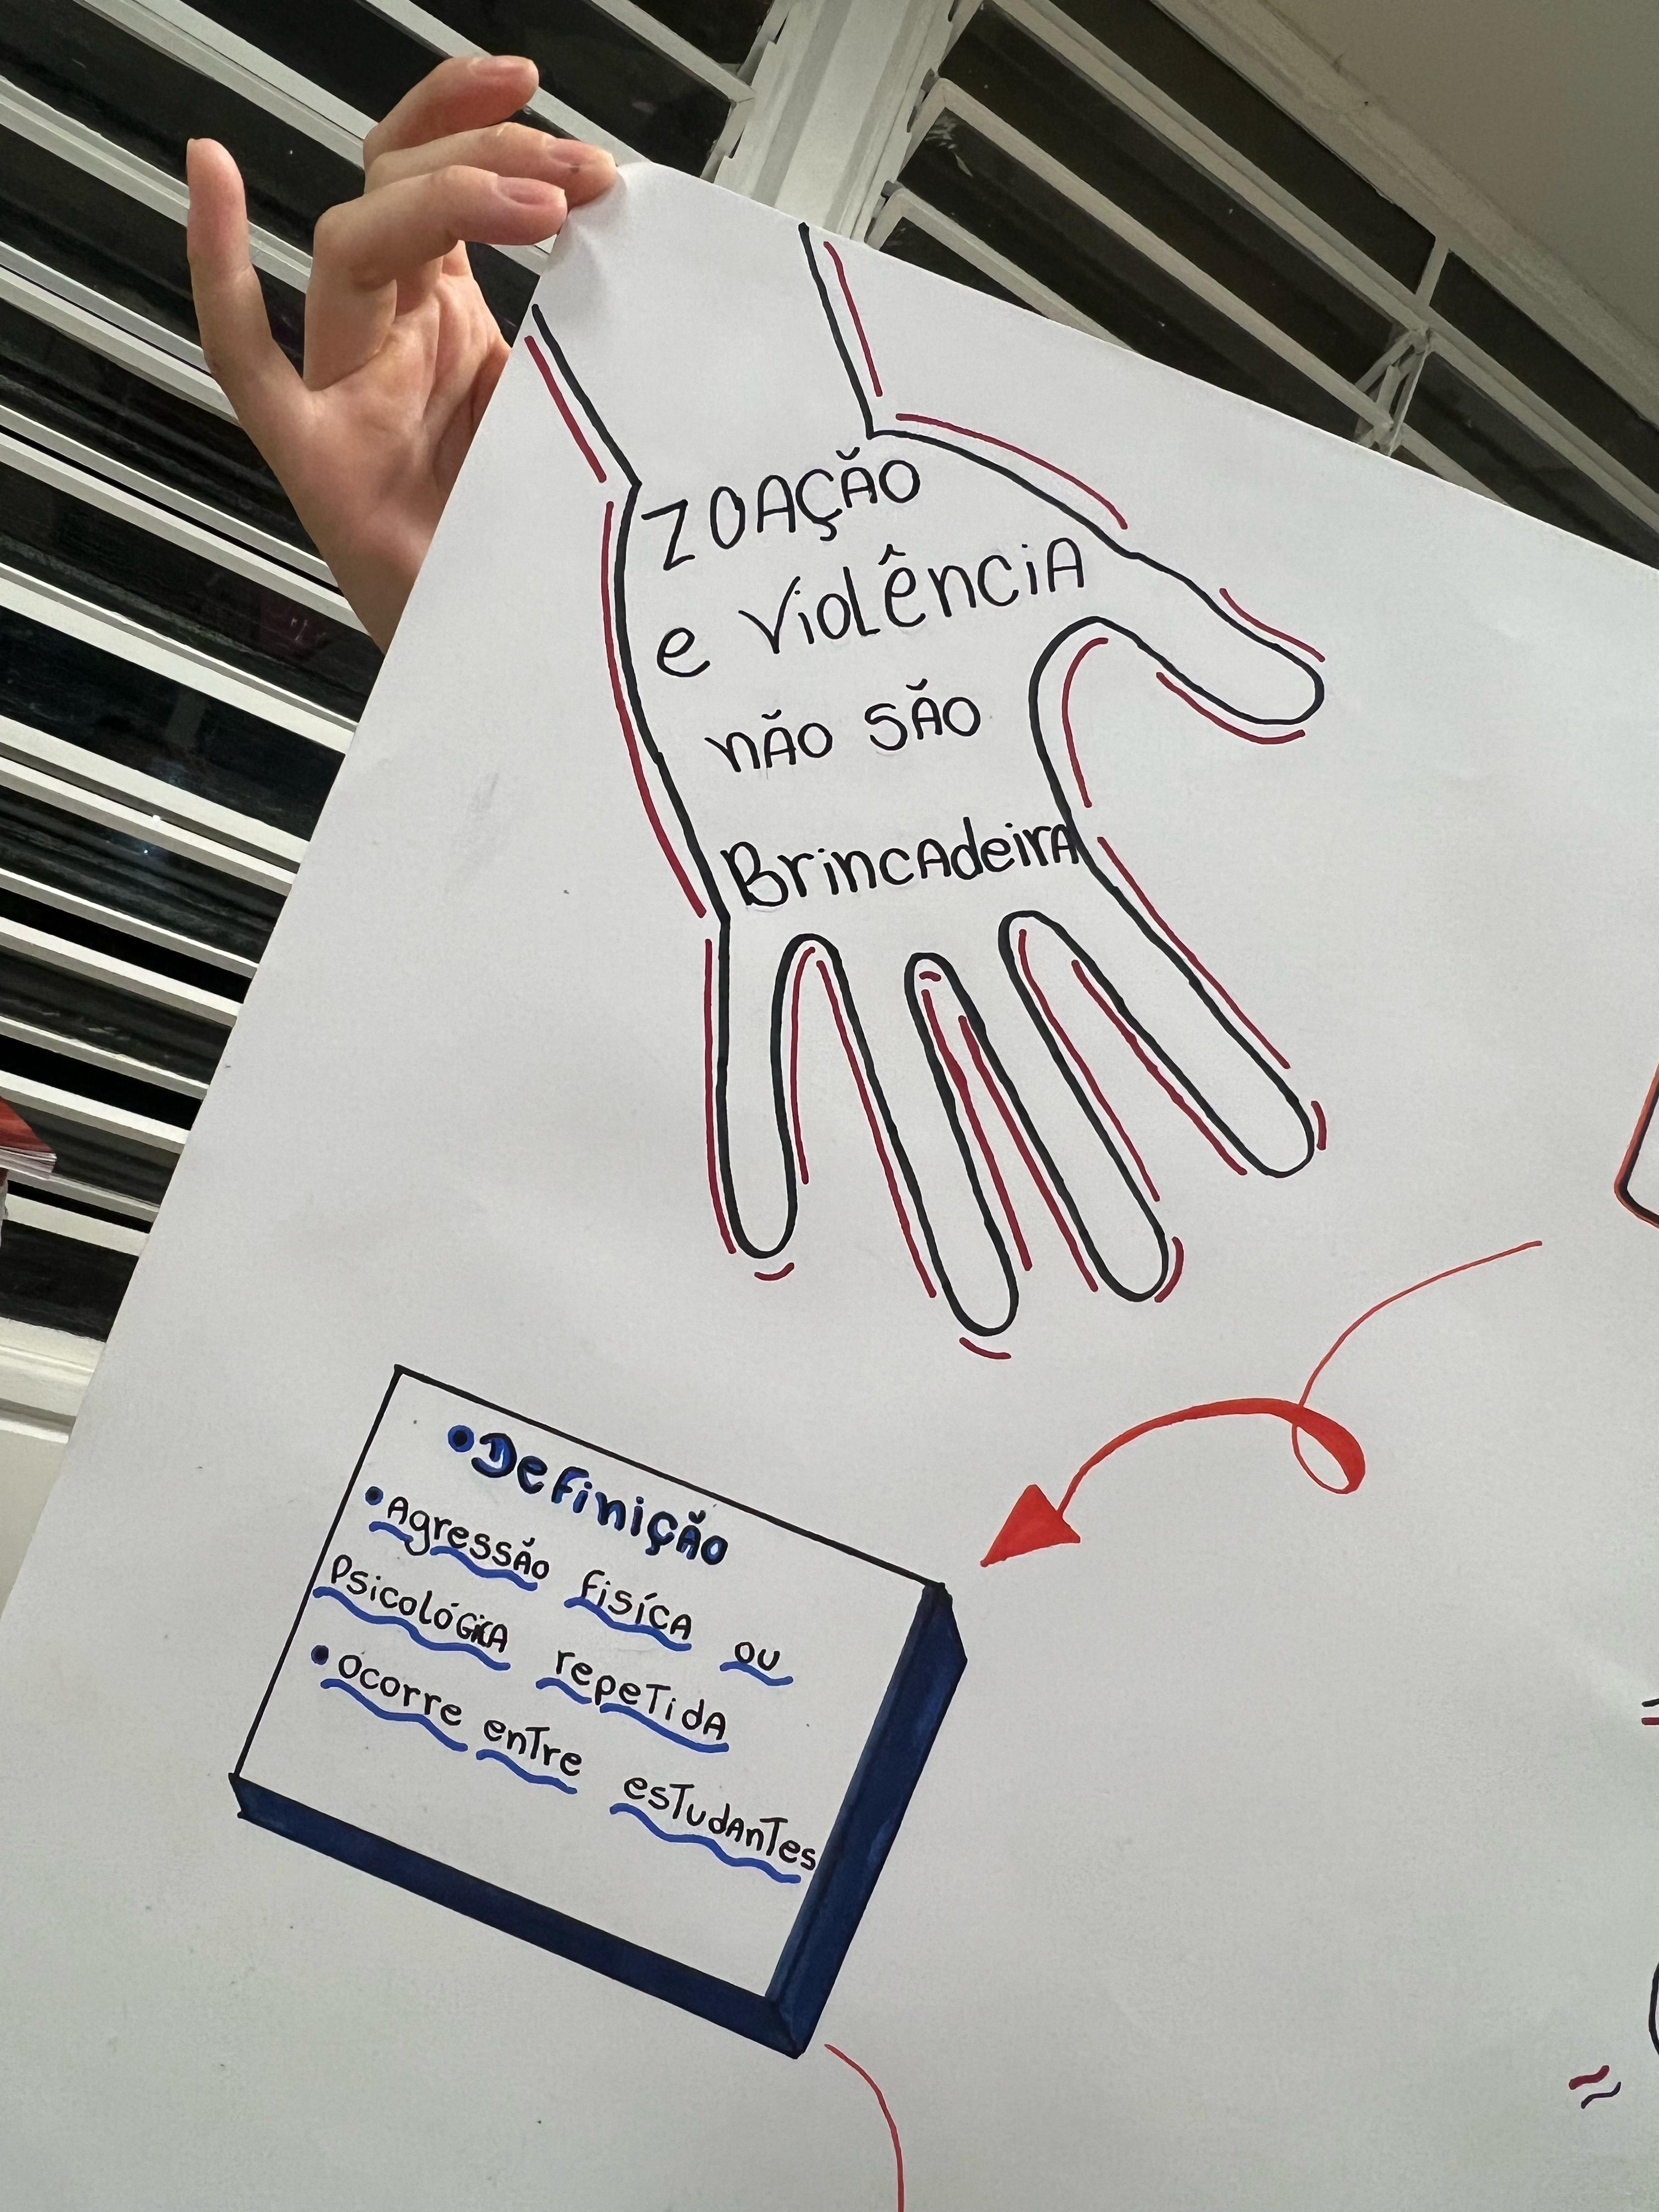 ZOAÇÃO
e violência
não são
Brincadeira
•Definição
•Agressão fisíca ou
psicológica repetida
•ocorre entre estudantes